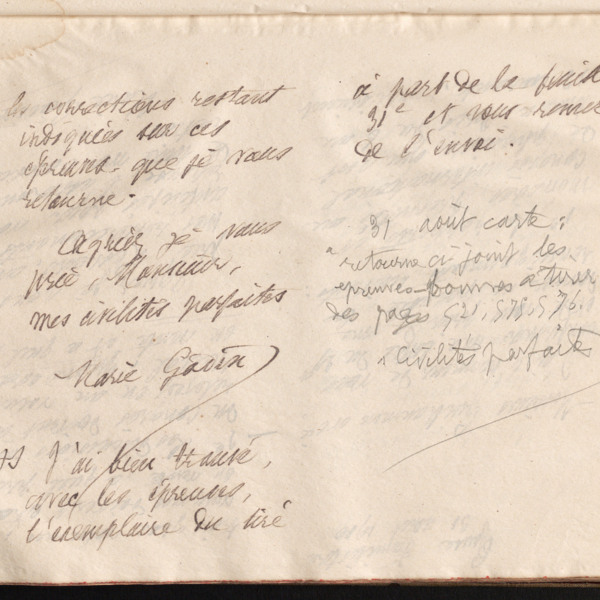 les corrections restant
indiquées sur ces
épreuves que je vous
retourne.
Agréez je vous
prie, Monsieur,
mes civilités parfaites
Marie
PS J'ai bien trouvé,
avec les épreuves,
l'exemplaire du tiré
à part de la feuille
31e et vous remercie
de l'envoi.
31 août carte :
retourne ci joint les
épreuves bonnes à tirer
des pages 521, 578, 576.
civilités parfaites